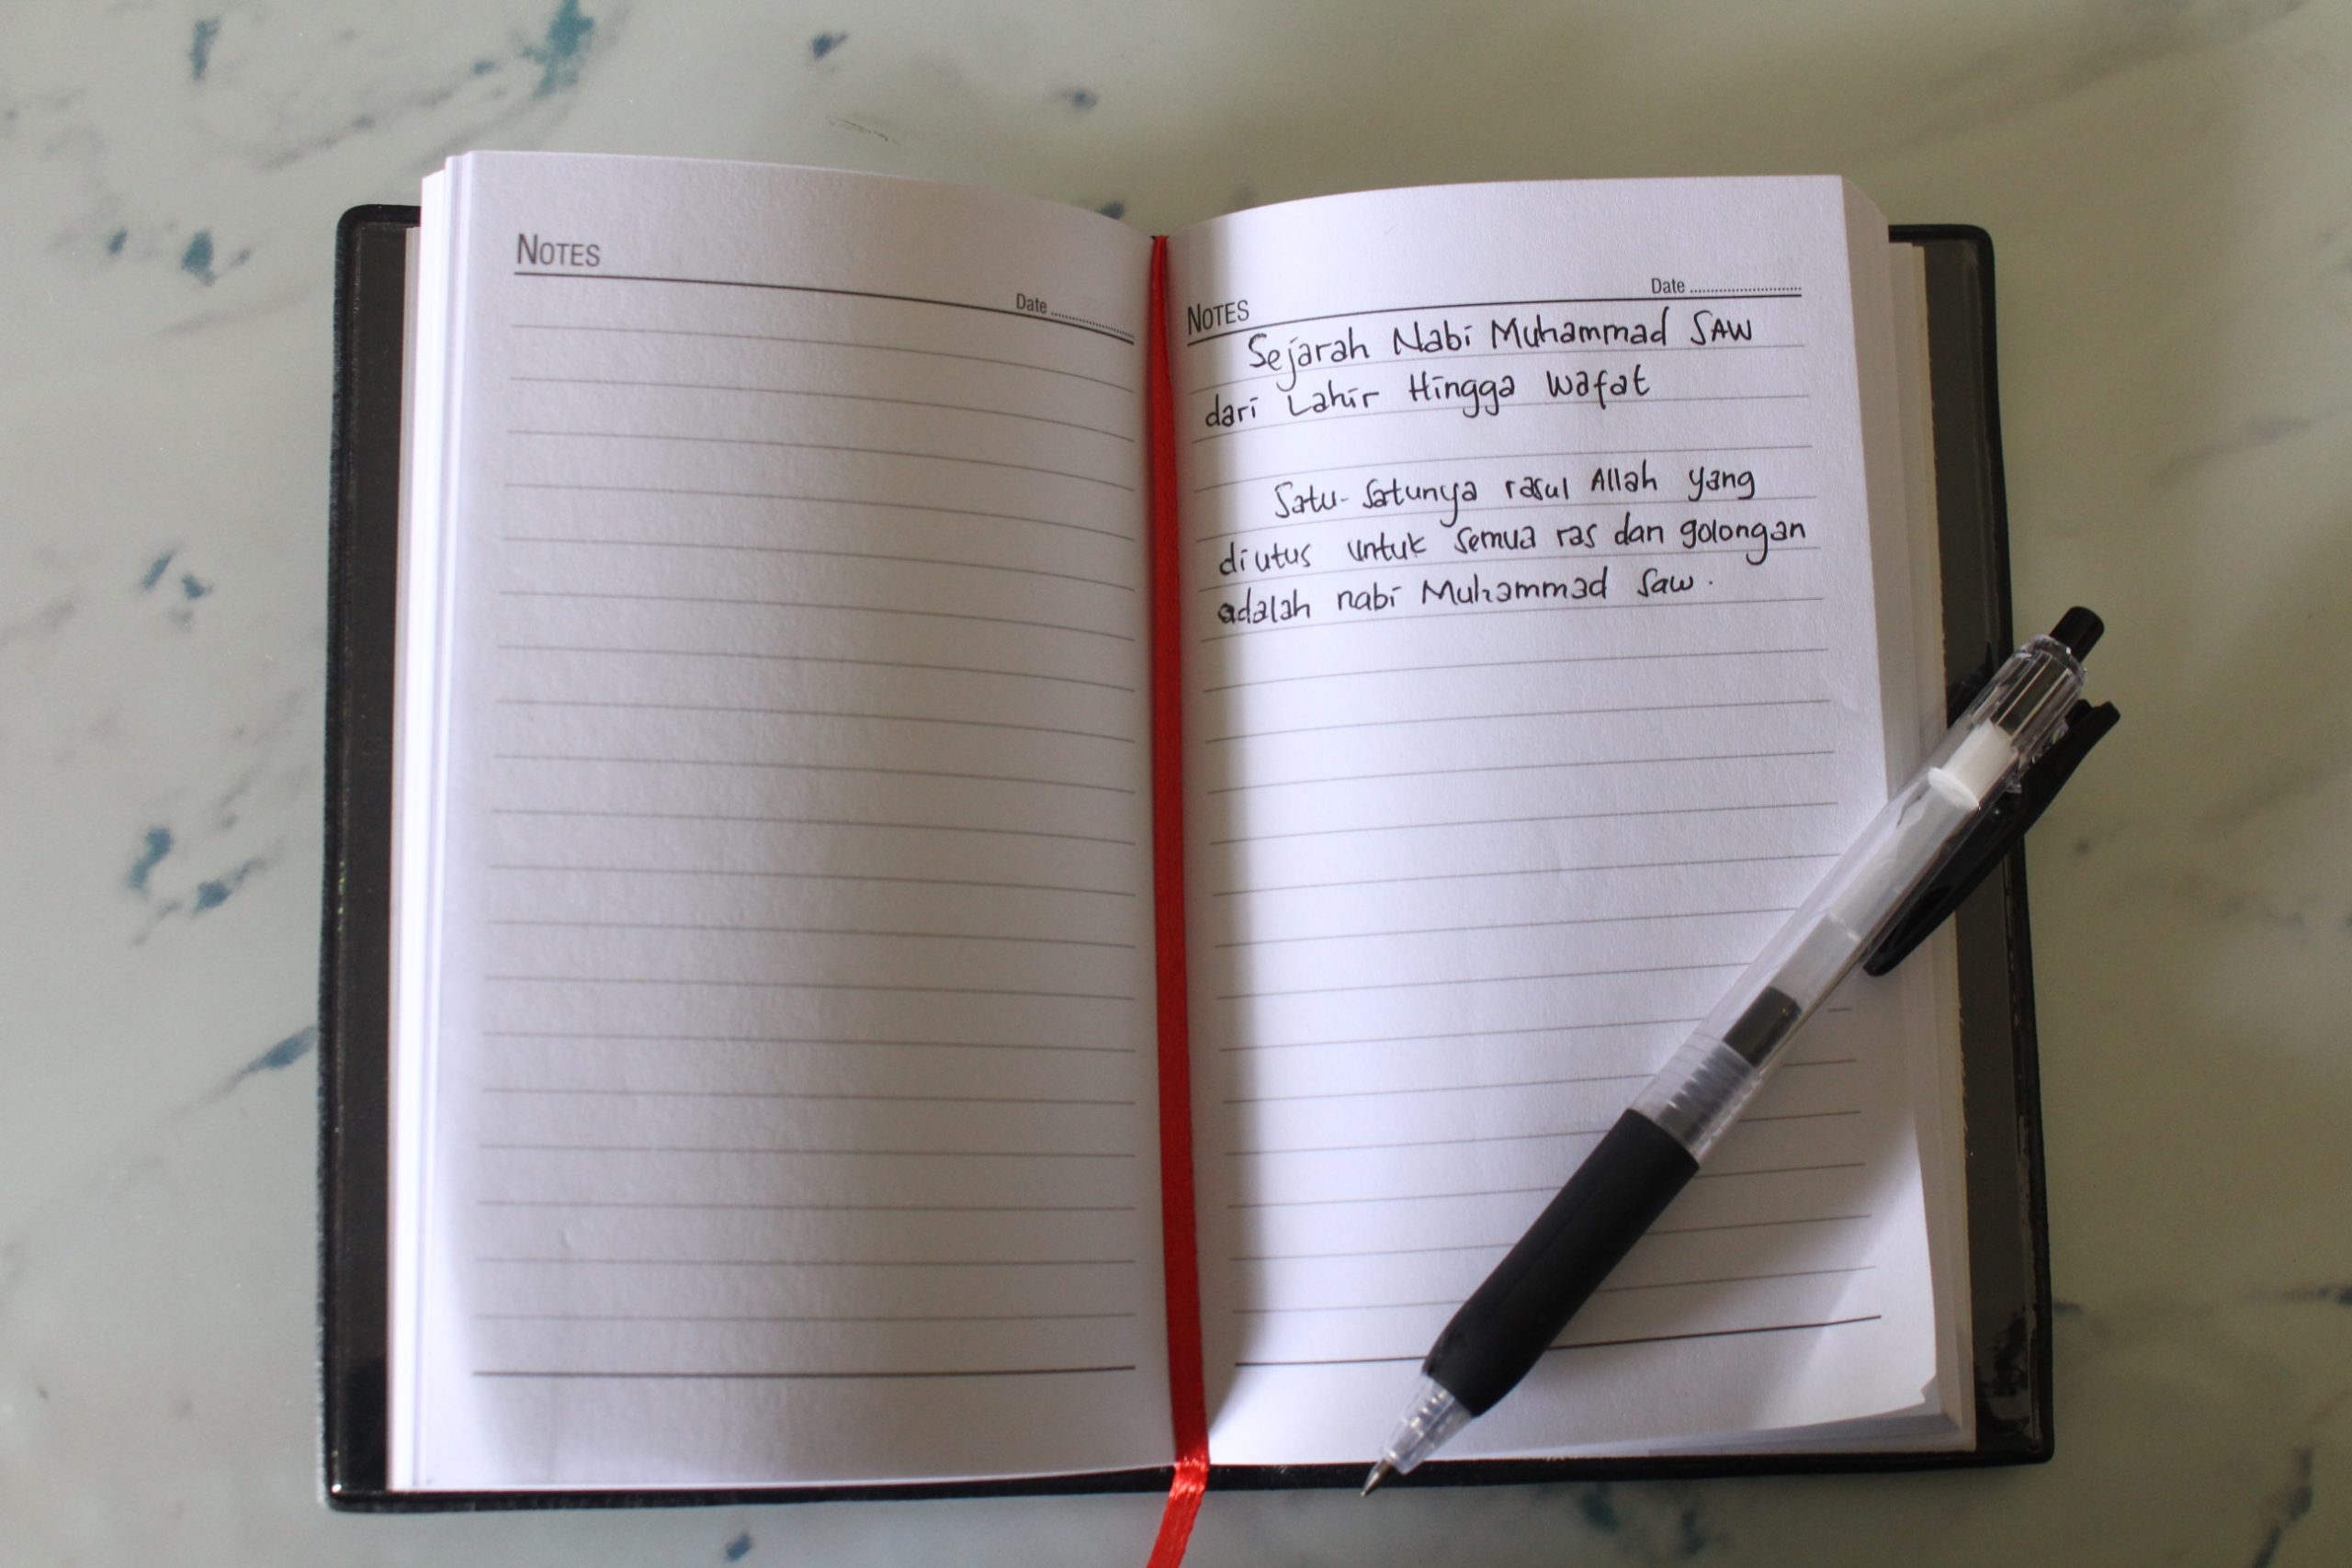 NOTES
Date
NOTES
Date
Sejarah Nabi Muhammad SAW
dari Lahir Hingga Wafat
Satu-Satunya rasul Allah yang
diutus untuk semua ras dan golongan
adalah nabi Muhammad Saw.